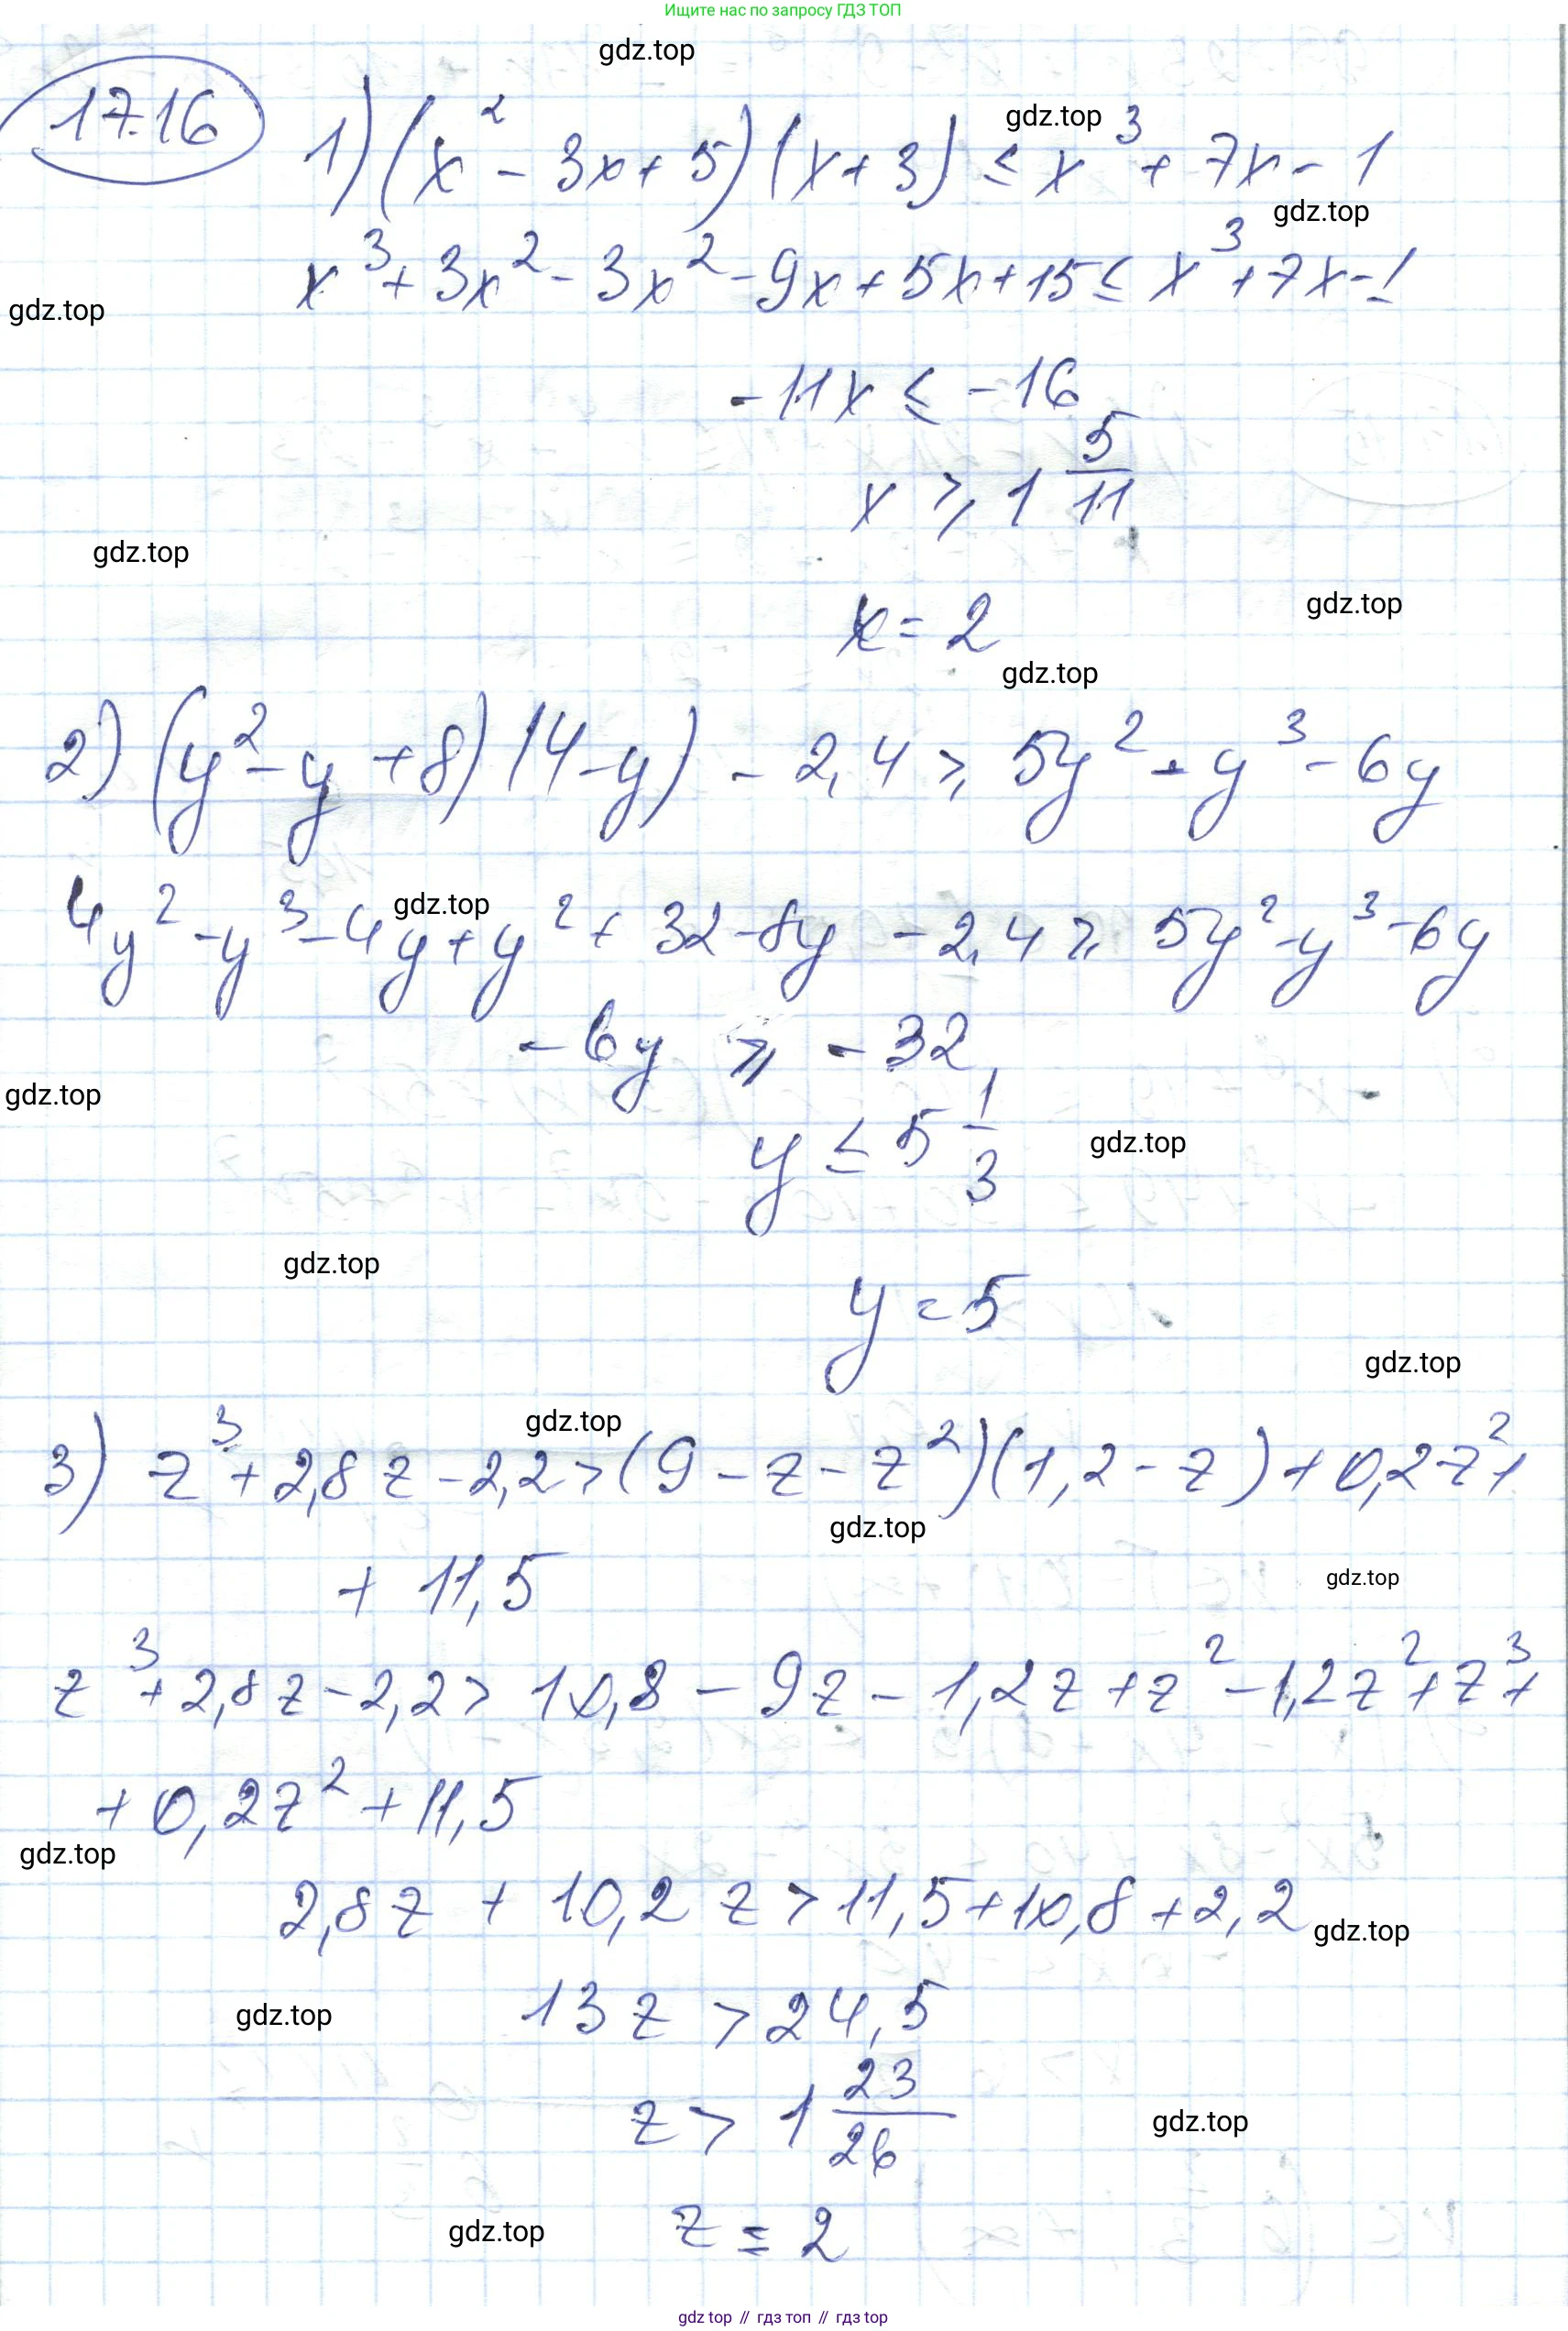 Ищите нас по запросу ГДЗ ТОП
gdz.top
17.16
1) (x² - 3x + 5)(x + 3) ≤ x³ + 7x - 1
gdz.top
gdz.top
x³ + 3x² - 3x² - 9x + 5x + 15 ≤ x³ + 7x - 1
gdz.top
-11x ≤ -16
x ≥ 1 5/11
gdz.top
gdz.top
x = 2
gdz.top
2) (y² - y + 8)(4 - y) - 2,4 ≥ 5y² - y³ - 6y
gdz.top
4y² - y³ - 4y + y² + 32 - 8y - 2,4 ≥ 5y² - y³ - 6y
-6y ≥ -32
gdz.top
y ≤ 5 1/3
gdz.top
gdz.top
y = 5
gdz.top
gdz.top
3) z³ + 2,8z - 2,2 > (9 - z - z²)(1,2 - z) + 0,2z² +
gdz.top
+ 11,5
gdz.top
z³ + 2,8z - 2,2 > 10,8 - 9z - 1,2z + z² - 1,2z² + z³ +
+ 0,2z² + 11,5
gdz.top
2,8z + 10,2z > 11,5 + 10,8 + 2,2
gdz.top
gdz.top
13z > 24,5
z > 1 23/26
gdz.top
z = 2
gdz.top
gdz top // гдз топ // гдз top